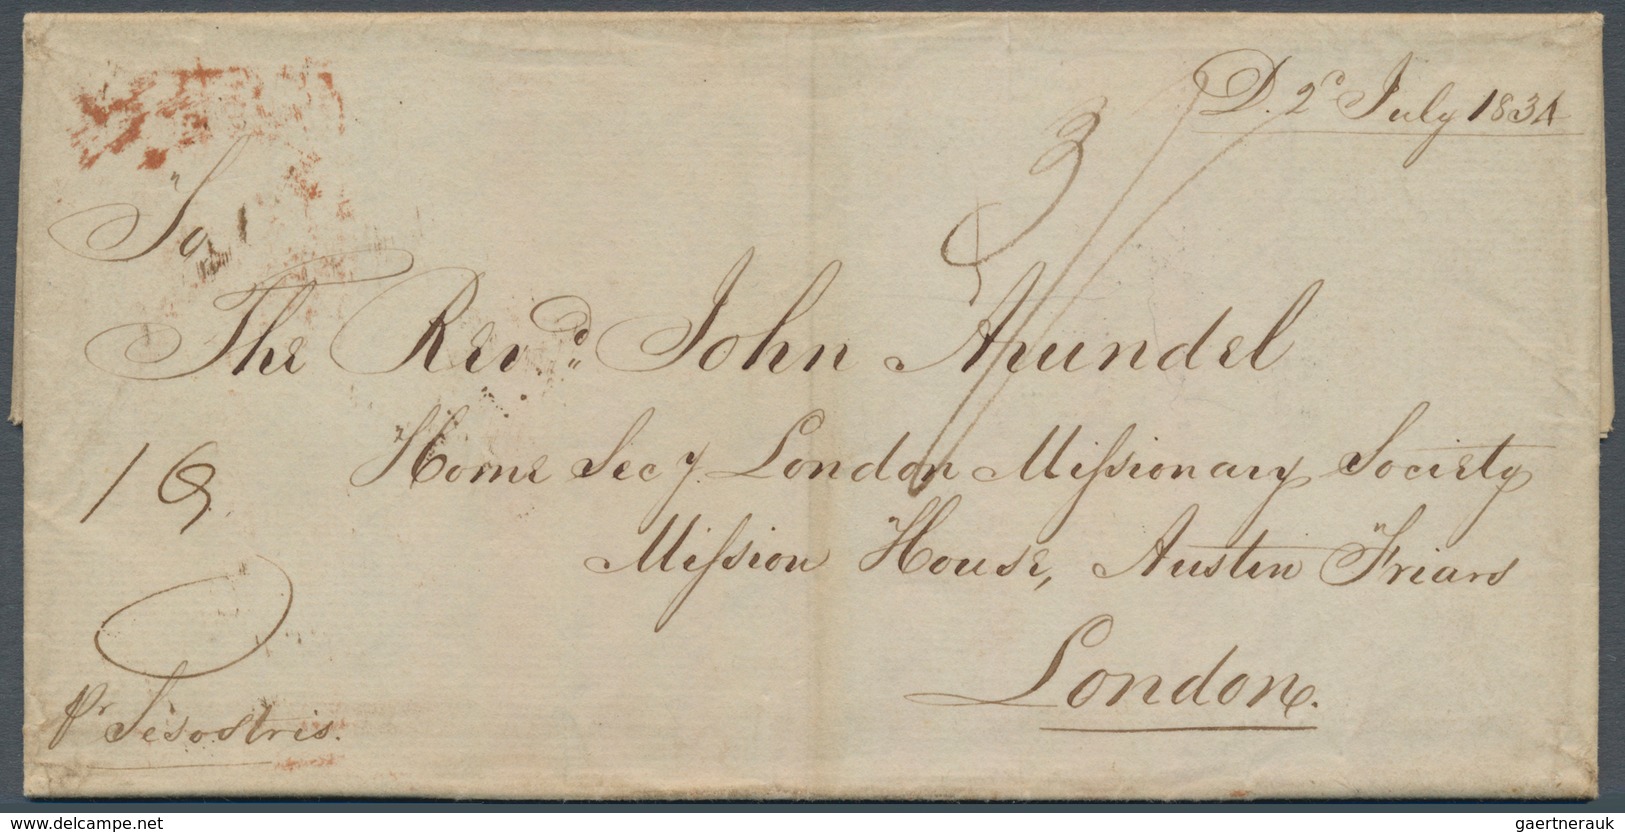 D. 2d July 1834
3/
To
The Revd. John Arundel
Home Secy. London Miſsionary Society
Miſsion House, Austin Friars
London.
pr Sesostris.
www.delcampe.net
gaertnerauk